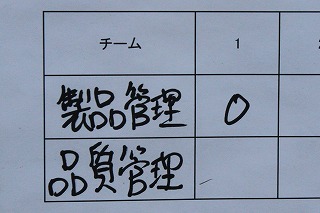 チーム 1
製品管理 0
品質管理